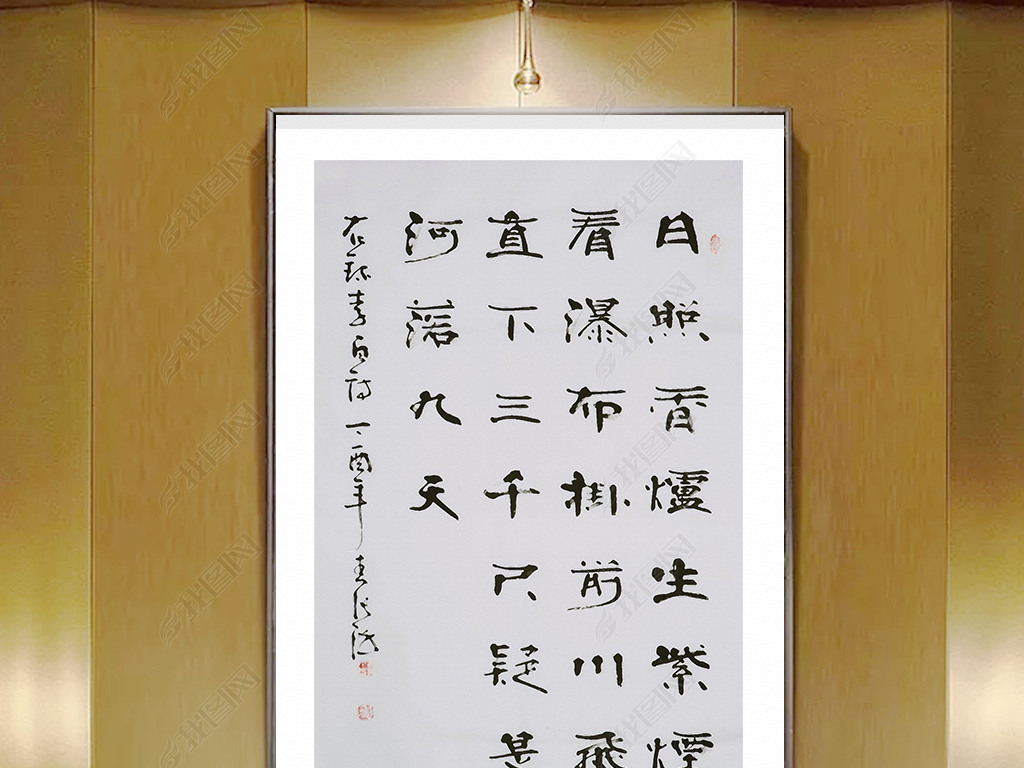 日照香爐生紫煙
看瀑布掛前川飛
直下三千尺疑是
河落九天
右錄李白詩丁酉年
我图网